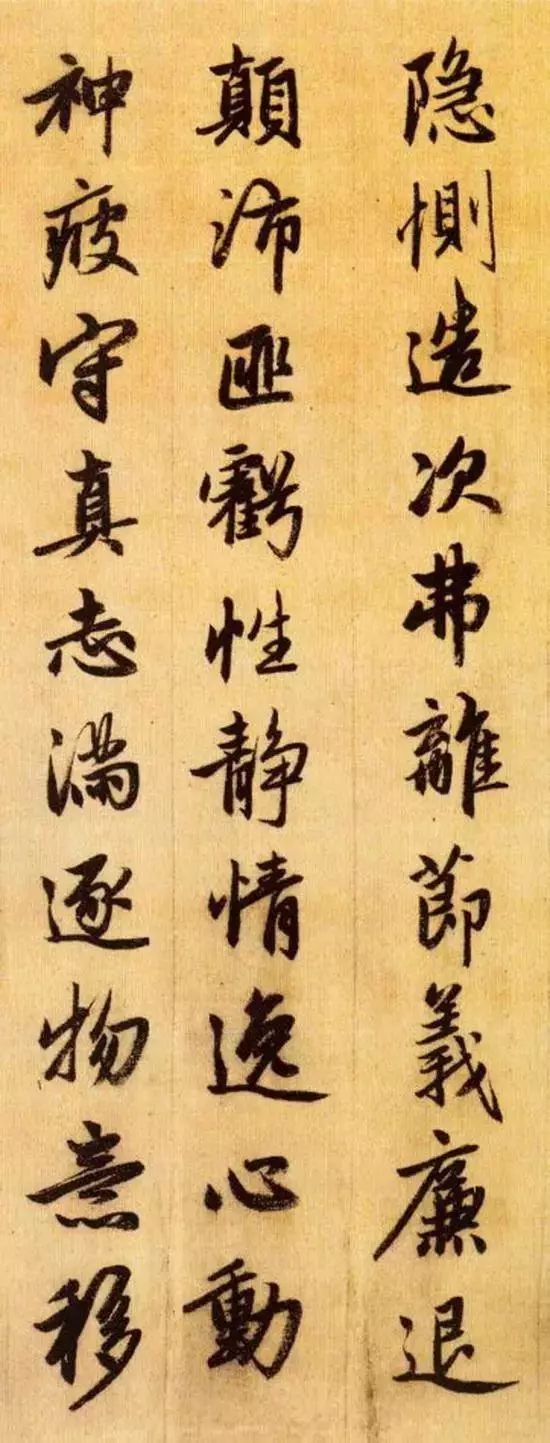 隐惻造次弗離節義廉退
顛沛匪虧性静情逸心動
神疲守真志滿逐物意移